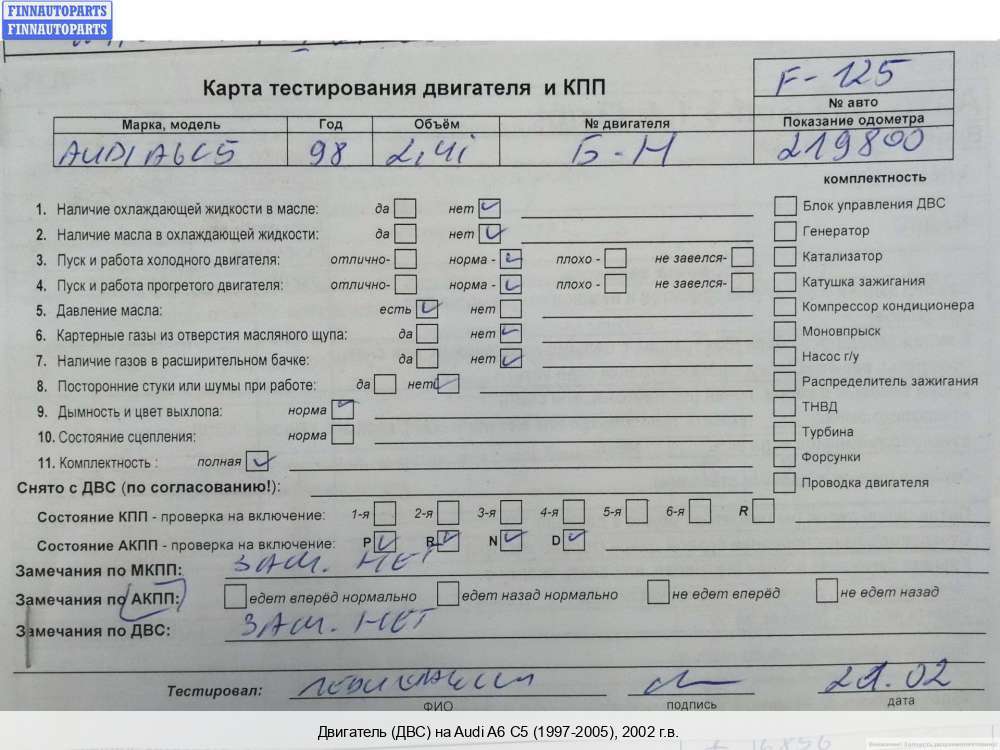 FINNAUTOPARTS
FINNAUTOPARTS
Карта тестирования двигателя и КПП
F-125
№ авто
Марка, модель Год Объём № двигателя Показание одометра
AUDI A6C5 98 2,4i Б-Н 219800
комплектность
1. Наличие охлаждающей жидкости в масле: да нет Блок управления ДВС
2. Наличие масла в охлаждающей жидкости: да нет Генератор
3. Пуск и работа холодного двигателя: отлично- норма - плохо - не завелся- Катализатор
4. Пуск и работа прогретого двигателя: отлично- норма - плохо - не завелся- Катушка зажигания
5. Давление масла: есть нет Компрессор кондиционера
6. Картерные газы из отверстия масляного щупа: да нет Моновпрыск
7. Наличие газов в расширительном бачке: да нет Насос г/у
8. Посторонние стуки или шумы при работе: да нет Распределитель зажигания
9. Дымность и цвет выхлопа: норма ТНВД
10. Состояние сцепления: норма Турбина
11. Комплектность : полная Форсунки
Снято с ДВС (по согласованию!): Проводка двигателя
Состояние КПП - проверка на включение: 1-я 2-я 3-я 4-я 5-я 6-я R
Состояние АКПП - проверка на включение: P R N D
Замечания по МКПП: ЗАМ. НЕТ
Замечания по АКПП: едет вперёд нормально едет назад нормально не едет вперёд не едет назад
Замечания по ДВС: ЗАМ. НЕТ
Тестировал: 21.02
ФИО подпись дата
Двигатель (ДВС) на Audi A6 C5 (1997-2005), 2002 г.в.